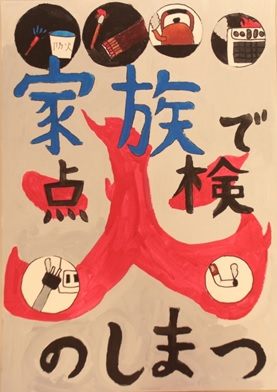 防火
家族で
点検
火
のしまつ